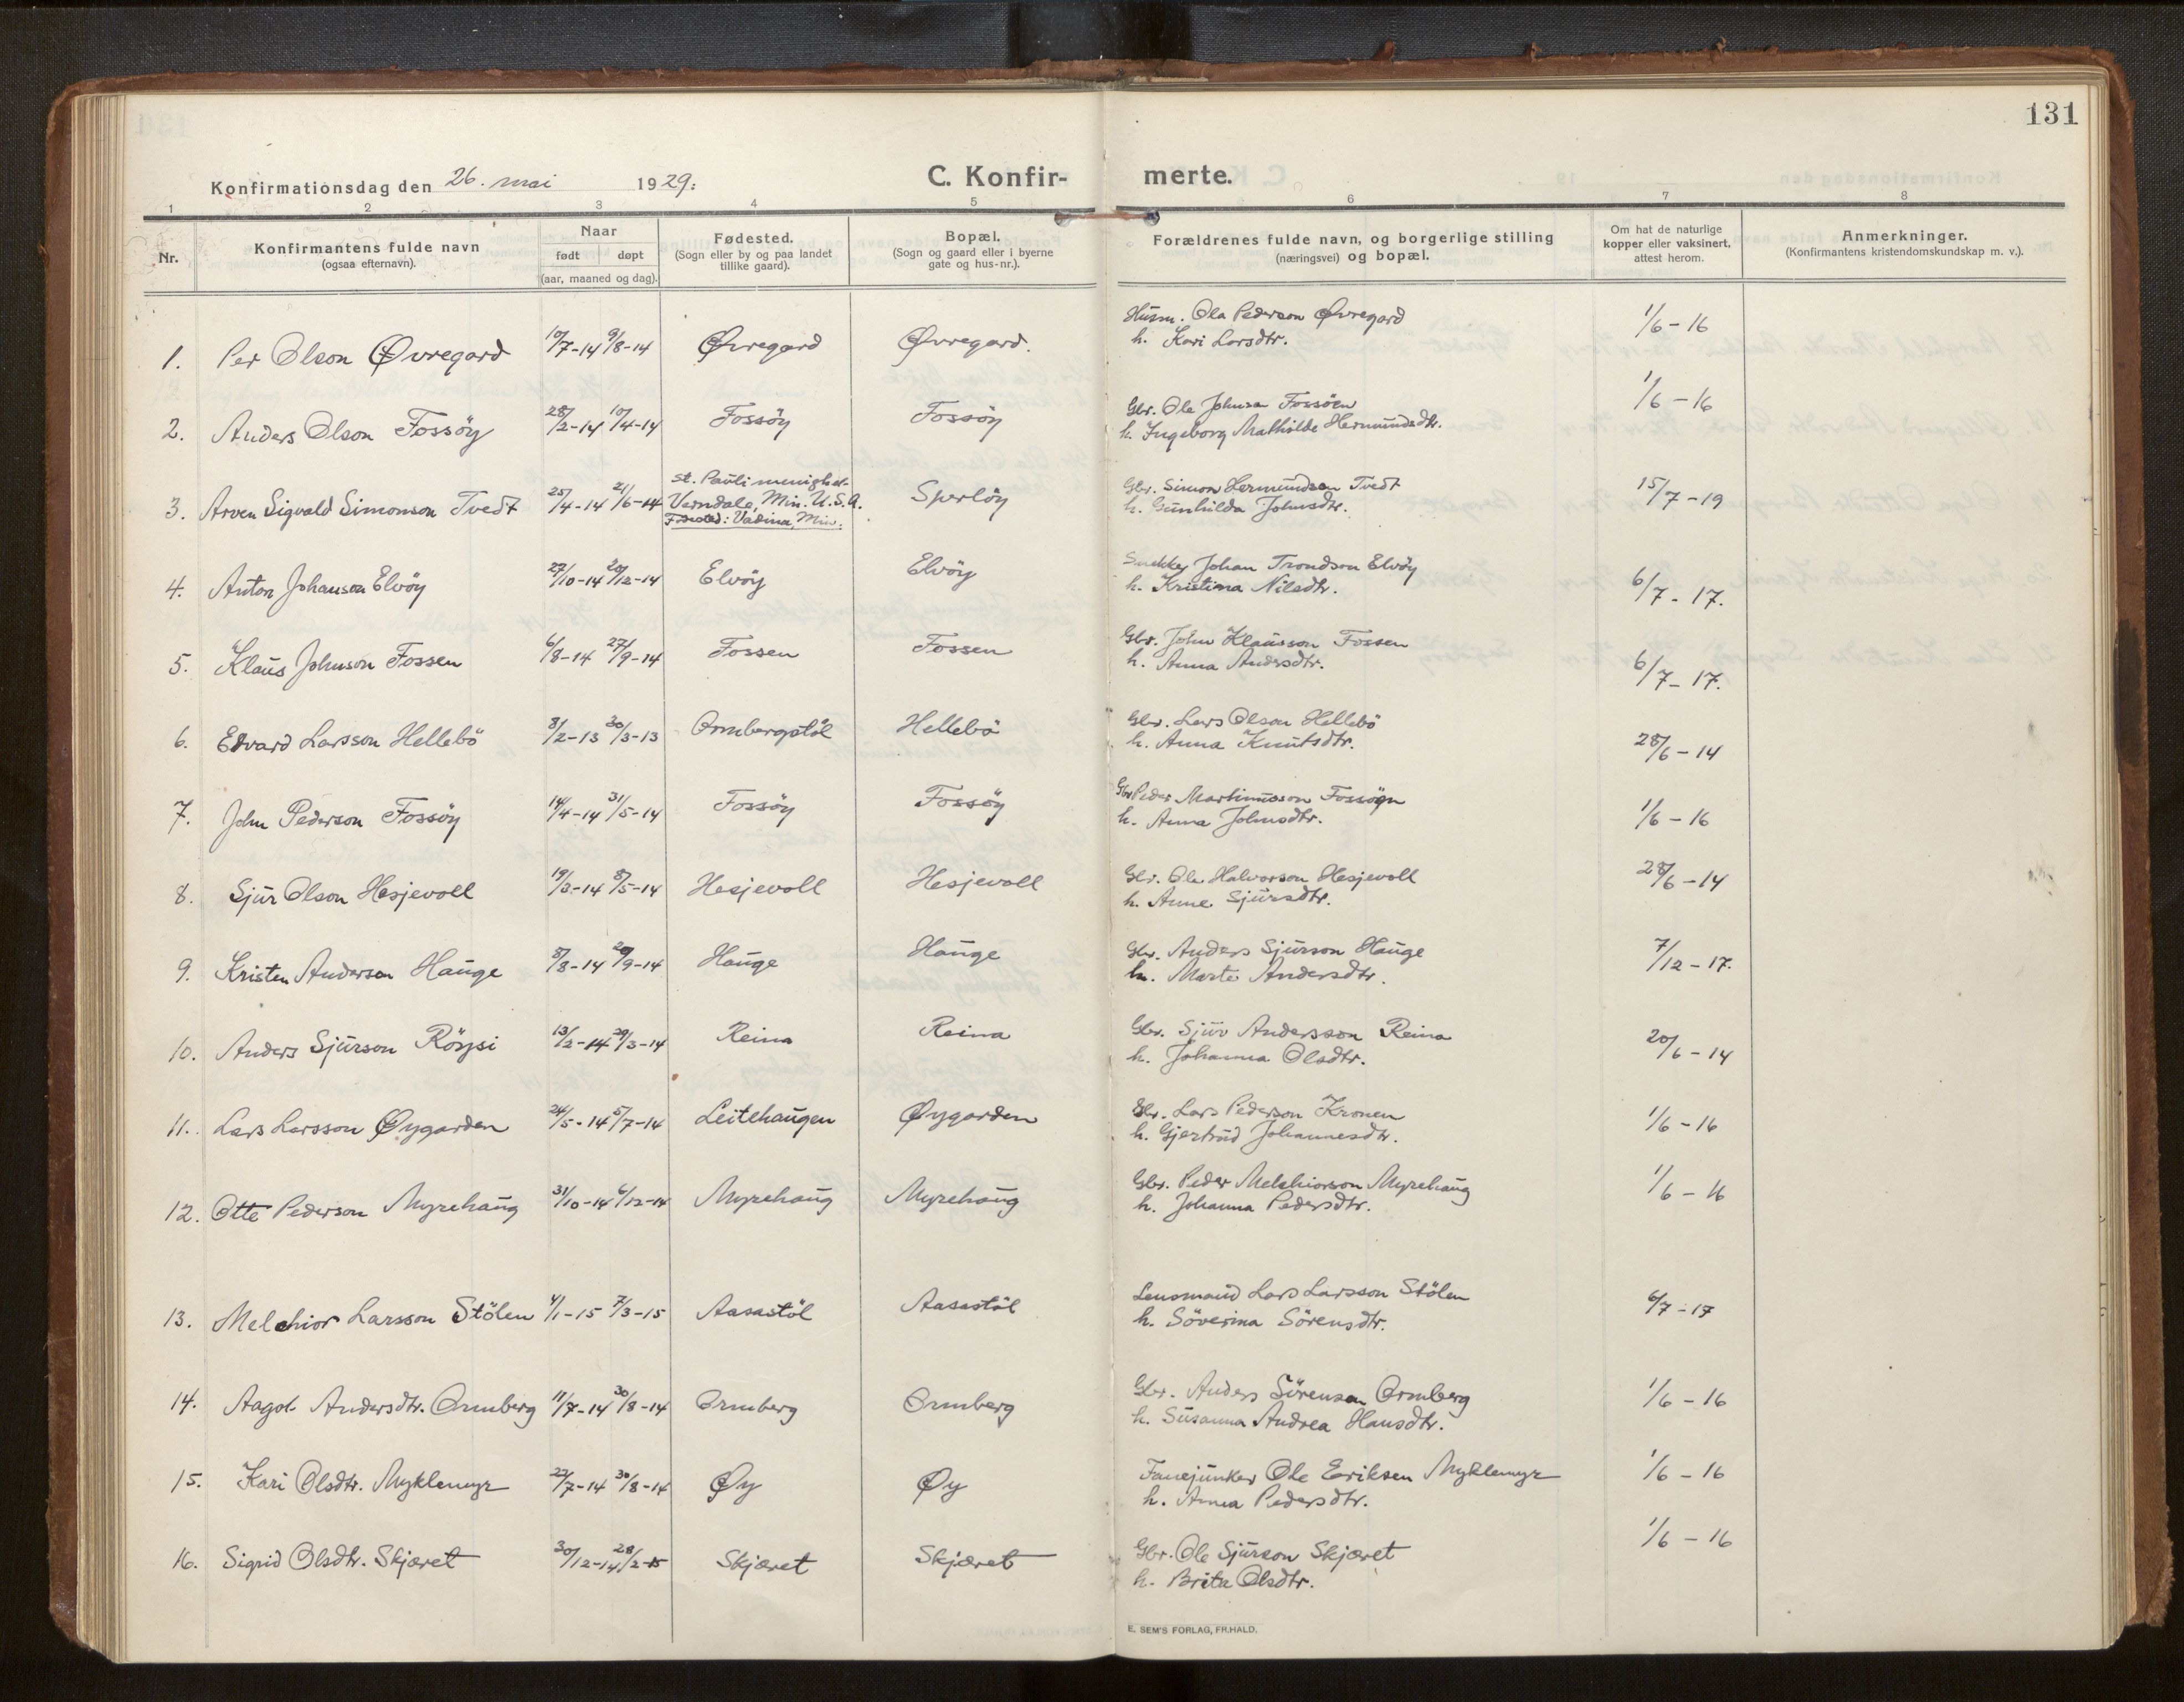 131
Konfirmationsdag den 26. mai 1929.
C. Konfir-
merte.
1 2 3 4 5 6 7 8
Nr.
Konfirmantens fulde navn
(ogsaa efternavn).
Naar
født døpt
(aar, maaned og dag).
Fødested.
(Sogn eller by og paa landet
tillike gaard).
Bopæl.
(Sogn og gaard eller i byerne
gate og hus-nr.).
Forældrenes fulde navn, og borgerlige stilling
(næringsvei) og bopæl.
Om hat de naturlige
kopper eller vaksinert,
attest herom.
Anmerkninger.
(Konfirmantens kristendomskundskap m. v.).
1. Per Olson Øvregard 10/7-14 9/8-14 Øvregard Øvregard.
Husm. Ola Pederson Øvregard
h. Kari Larsdtr.
1/6-16
2. Anders Olson Fossöy 28/2-14 10/4-14 Fossöy Fossöy
Gbr. Ole Johnson Fossöen
h. Ingeborg Mathilde Hermundsdtr.
1/6-16
3. Arven Sigvald Simonson Tvedt 25/4-14 21/6-14
St. Pauli menighet
Verndale, Min. U.S.A.
Födested: Vadina, Min.
Sperlöy
Gbr. Simon Hermundson Tvedt
h. Gunhilda Johnsdtr.
15/7-19
4. Anton Johanson Elvöy 27/10-14 20/12-14 Elvöy Elvöy
Snekker Johan Trondson Elvöy
h. Kristina Nilsdtr.
6/7-17.
5. Klaus Johnson Fossen 6/8-14 27/9-14 Fossen Fossen
Gbr. John Klausson Fossen
h. Anna Andersdtr.
6/7-17.
6. Edvard Larsson Hellebö 8/2-13 30/3-13 Ormbergstöl Hellebö
Gbr. Lars Olson Hellebö
h. Anna Knutsdtr.
28/6-14
7. John Pederson Fossöy 14/4-14 31/5-14 Fossöy Fossöy
Gbr. Peder Martinusson Fossöyn
h. Anna Johnsdtr.
1/6-16
8. Sjur Olson Hesjevoll 19/3-14 8/5-14 Hesjevoll Hesjevoll
Gbr. Ole Halvorson Hesjevoll
h. Anne Sjursdtr.
28/6-14
9. Kristen Anderson Hauge 8/8-14 20/9-14 Hauge Hauge
Gbr. Anders Sjurson Hauge
h. Marte Andersdtr.
7/12-17.
10. Anders Sjurson Röysi 13/2-14 29/3-14 Reina Reina
Gbr. Sjur Andersson Reina
h. Johanna Olsdtr.
20/6-14
11. Lars Larsson Øygarden 24/5-14 5/7-14 Leitehaugen Øygarden
Gbr. Lars Pederson Kronen
h. Gjertrud Johannesdtr.
1/6-16
12. Otte Pederson Myrehaug 31/10-14 6/12-14 Myrehaug Myrehaug
Gbr. Peder Melchiorson Myrehaug
h. Johanna Pedersdtr.
1/6-16
13. Melchior Larsson Stölen 4/1-15 7/3-15 Aasastöl Aasastöl
Lensmand Lars Larsson Stölen
h. Söverina Sörensdtr.
6/7-17
14. Aagot Andersdtr. Ormberg 11/7-14 30/8-14 Ormberg Ormberg
Gbr. Anders Sörenson Ormberg
h. Susanna Andrea Hansdtr.
1/6-16
15. Kari Olsdtr. Myklemyr 27/7-14 30/8-14 Øy Øy
Fanejunker Ole Eriksen Myklemyr
h. Anna Pedersdtr.
1/6-16
16. Sigrid Olsdtr. Skjæret 30/12-14 28/2-15 Skjæret Skjæret
Gbr. Ole Sjurson Skjæret
h. Brita Olsdtr.
1/6-16
E. SEM'S FORLAG, FR.HALD.